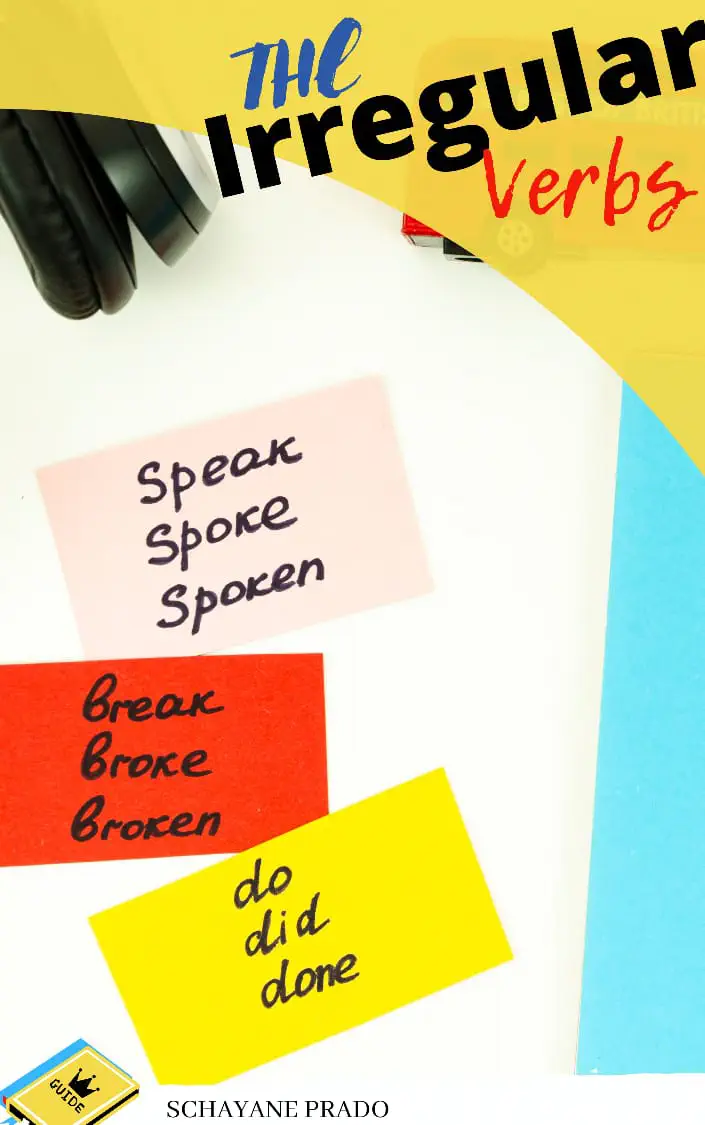 THE
Irregular
Verbs
Speak
Spoke
Spoken
break
broke
broken
do
did
done
GUIDE
SCHAYANE PRADO